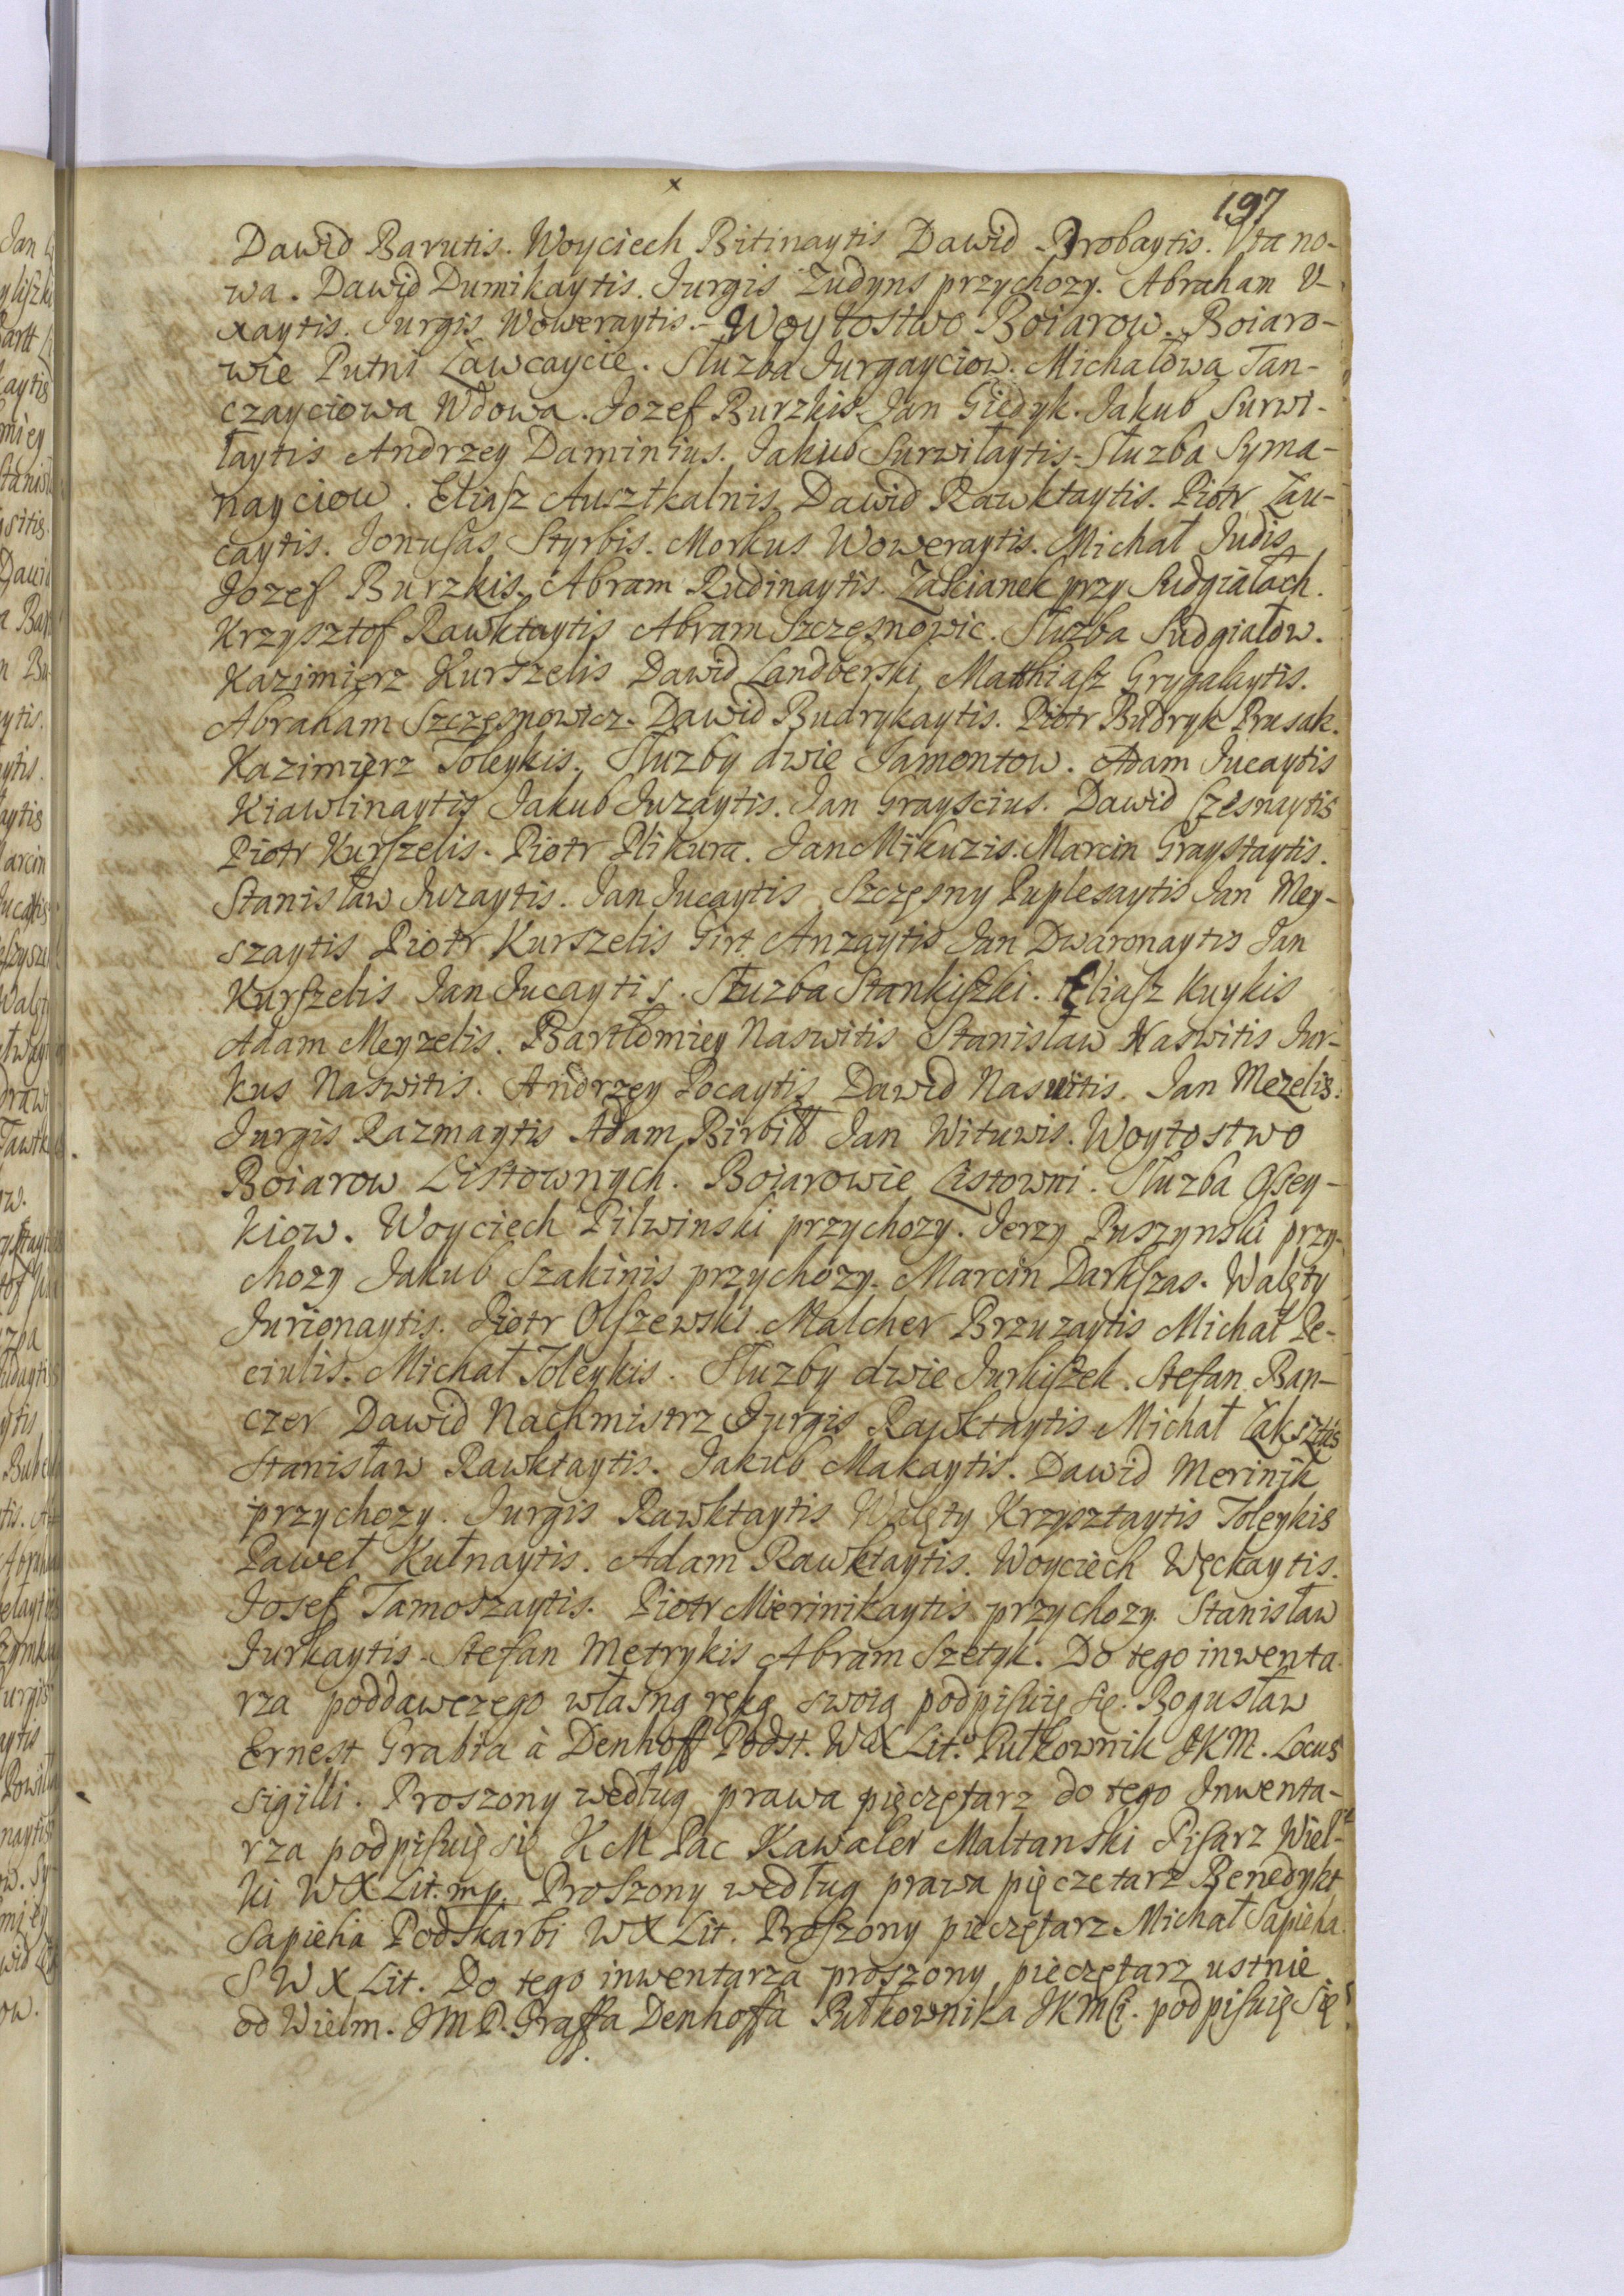 197
Dawid Barutis. Woyciech Bitinaytis Dawid Probaytis. Utano-
wa. Dawid Dumikaytis. Jurgis Zudyns przychozy. Abraham U-
xaytis. Jurgis Woweraytis. Woytostwo Boiarow. Boiaro-
wie Putni Ławcaycie. Służba Jurgayciow. Michałowa Tan-
czayciowa Wdowa. Jozef Burzkis Jan Giedyk. Jakub Surwi-
łaytis Andrzey Daminius. Jakub Surwiłaytis. Służba Syma-
nayciow. Eliasz Ausztkalnis Dawid Rawktaytis. Piotr Łau-
caytis. Jonusas Styrbis. Morkus Woweraytis. Michał Judis
Jozef Burzkis. Abram Rudinaytis. Zascianek przy Sudgiałach.
Krzysztof Rawktaytis Abram Szczęsnowic. Służba Sudgiałow.
Kazimierz Kurszelis Dawid Landberski Matthiasz Grygalaytis.
Abraham Szczęsnowicz. Dawid Budrykaytis. Piotr Budryk Prusak.
Kazimierz Toleykis. Służby dwie Jamontow. Adam Jucaytis
Kiawlinaytis Jakub Juzaytis. Jan Grayscius. Dawid Czesnaytis
Piotr Kurszelis. Piotr Plikura. Jan Mikuzis. Marcin Graystaytis.
Stanisław Juzaytis. Jan Jucaytis Szczęsny Puplesaytis Jan Mey-
szaytis Piotr Kurszelis Girt. Anzaytis Jan Dwaronaytis Jan
Kurszelis Jan Jucaytis. Służba Stankiszki. Eliasz Kuykis
Adam Meyzelis. Bartłomiey Naswitis Stanisław Naswitis Jur-
kus Naswitis. Andrzey Pocaytis Dawid Naswitis. Jan Mezelis.
Jurgis Razmaytis Adam Birbiłł Jan Wituwis. Woytostwo
Boiarow Listownych. Boiarowie Listowni. Służba Ossey-
kiow. Woyciech Pilwinski przychozy. Jerzy Puszynski przy-
chozy Jakub Szakinis przychozy. Marcin Darkszas. Walęty
Jurionaytis. Piotr Olszewski. Malcher Brzuzaytis Michał Pe-
ciulis. Michał Toleykis. Służby dwie Jurkiszek. Stefan Ban-
czer Dawid Nachmistrz Jurgis Rawktaytis Michał Zaksztis
Stanisław Rawktaytis. Jakub Makaytis. Dawid Merinik
przychozy. Jurgis Rawktaytis Walęty Krzysztaytis Toleykis
Paweł Kułnaytis. Adam Rawktaytis. Woyciech Węckaytis.
Josef Tamoszaytis. Piotr Merinikaytis przychozy. Stanisław
Jurkaytis. Stefan Metrykis Abram Szetyk. Do tego inwenta
rza poddawczego własną ręką swoią podpisuię się. Bogusław
Ernest Grabia à Denhoff Podst. WX Lit. Pułkownik JKM. Locus
sigilli. Proszony według prawa pięczętarz do tego Inwenta-
rza podpisuię się KM Pac Kawaler Maltanski Pisarz Wiel-
ki WX Lit. mp. Proszony według prawa pięczetarz Benedykt
Sapieha Podskarbi WX Lit. Proszony pieczętarz Michał Sapieha
S W X Lit. Do tego inwentarza proszony pieczętarz ustnie
od Wielm. JMP. Graffa Denhoffa Pułkownika JKMCi. podpisuię się